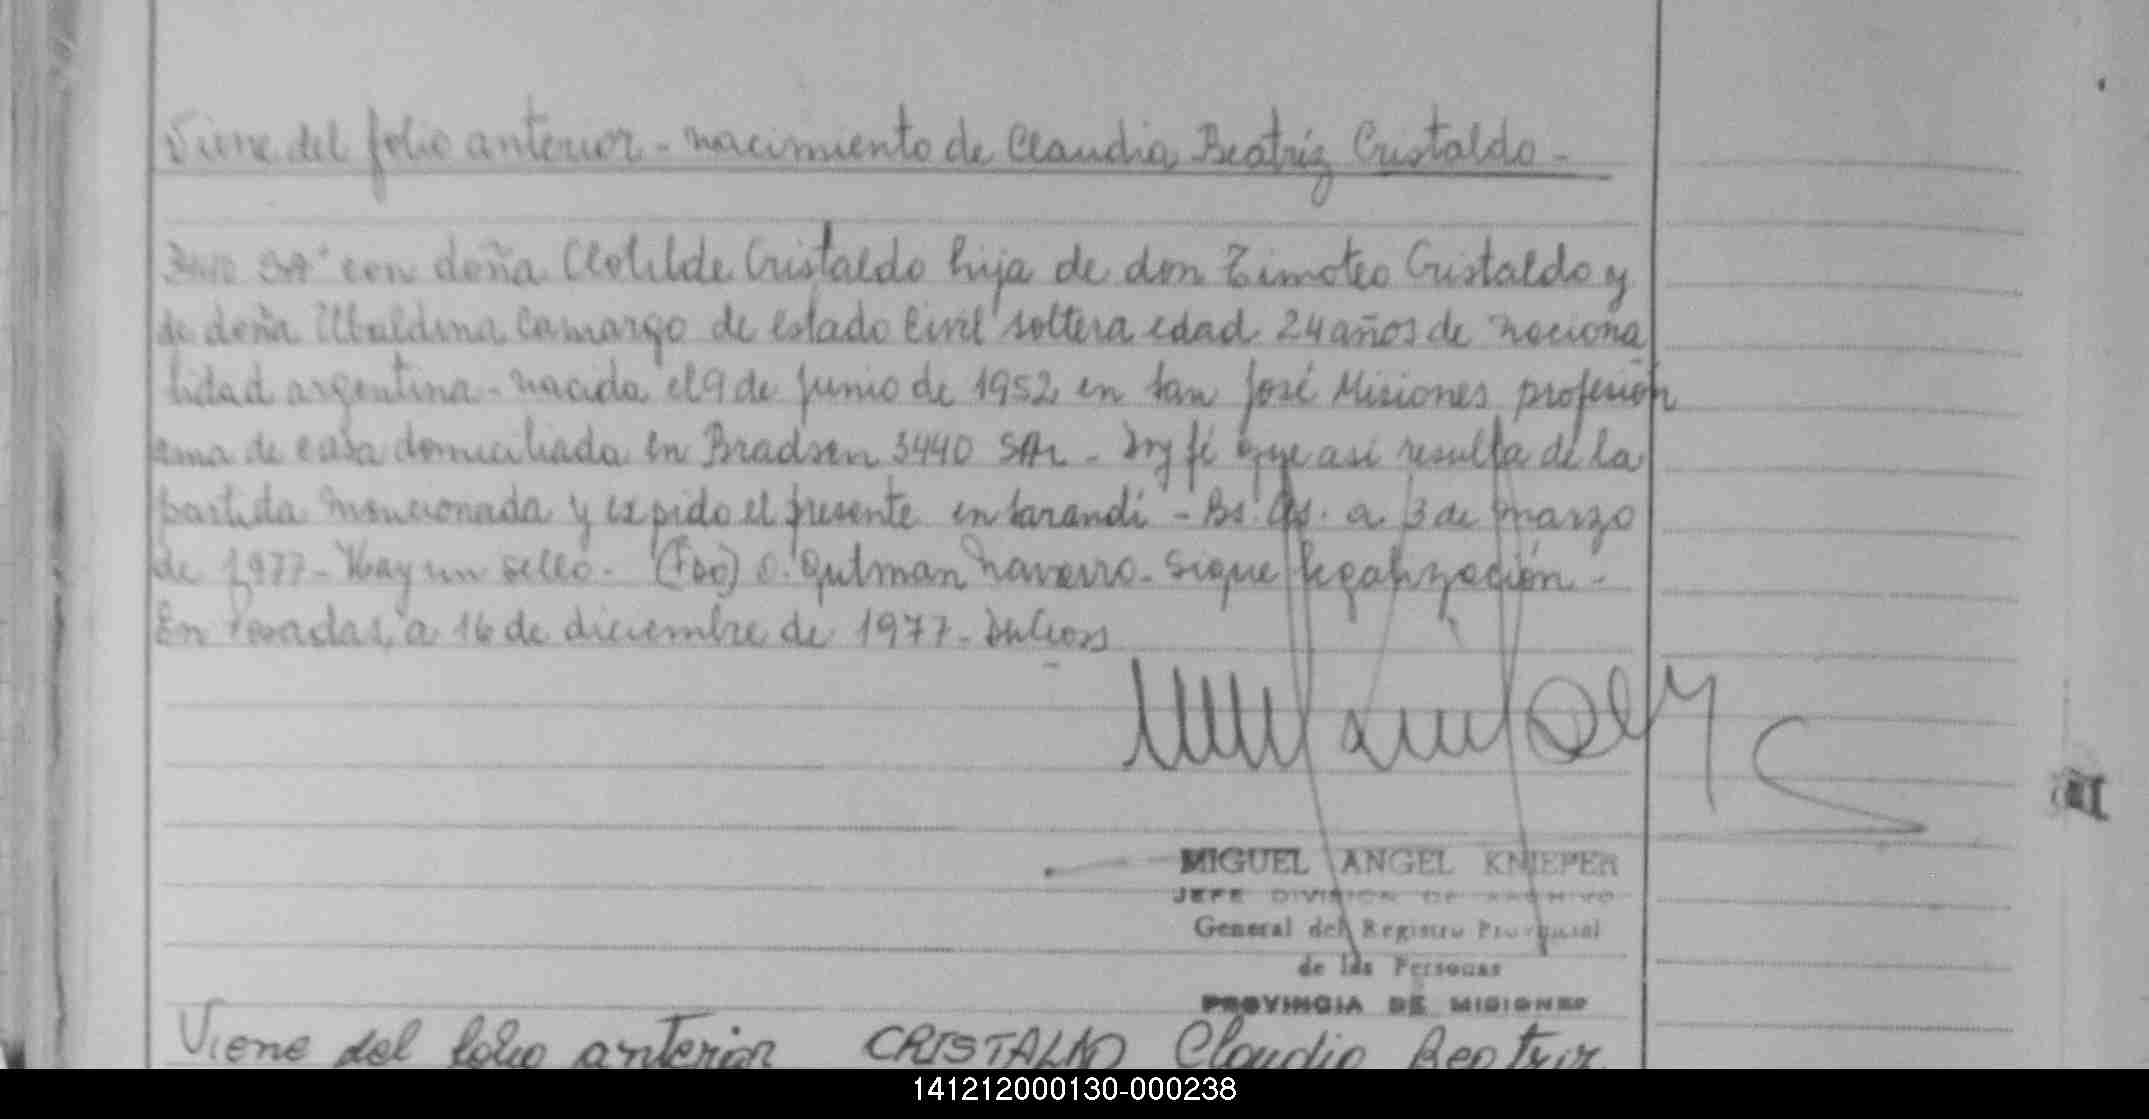 Viene del folio anterior - nacimiento de Claudia Beatriz Cristaldo -
con doña Clotilde Cristaldo hija de don Timoteo Cristaldo y
de doña Ubaldina Camargo de estado civil soltera edad 24 años de naciona
lidad argentina - nacida el 9 de Junio de 1952 en San José Misiones profesión
ama de casa domiciliada en Bradsen 3440 - Doy fé que asi resulta de la
partida mencionada y expido el presente en Sarandi - Bs. As. a 3 de marzo
de 1977 - Hay un sello. (Fdo) O. Gutman Navarro. Sigue legalización -
En Posadas, a 16 de diciembre de 1977 -
MIGUEL ANGEL KNIEPER
JEFE DIVISION DE ARCHIVO
General del Registro Provincial
de las Personas
PROVINCIA DE MISIONES
Viene del folio anterior CRISTALDO Claudia Beatriz
141212000130-000238